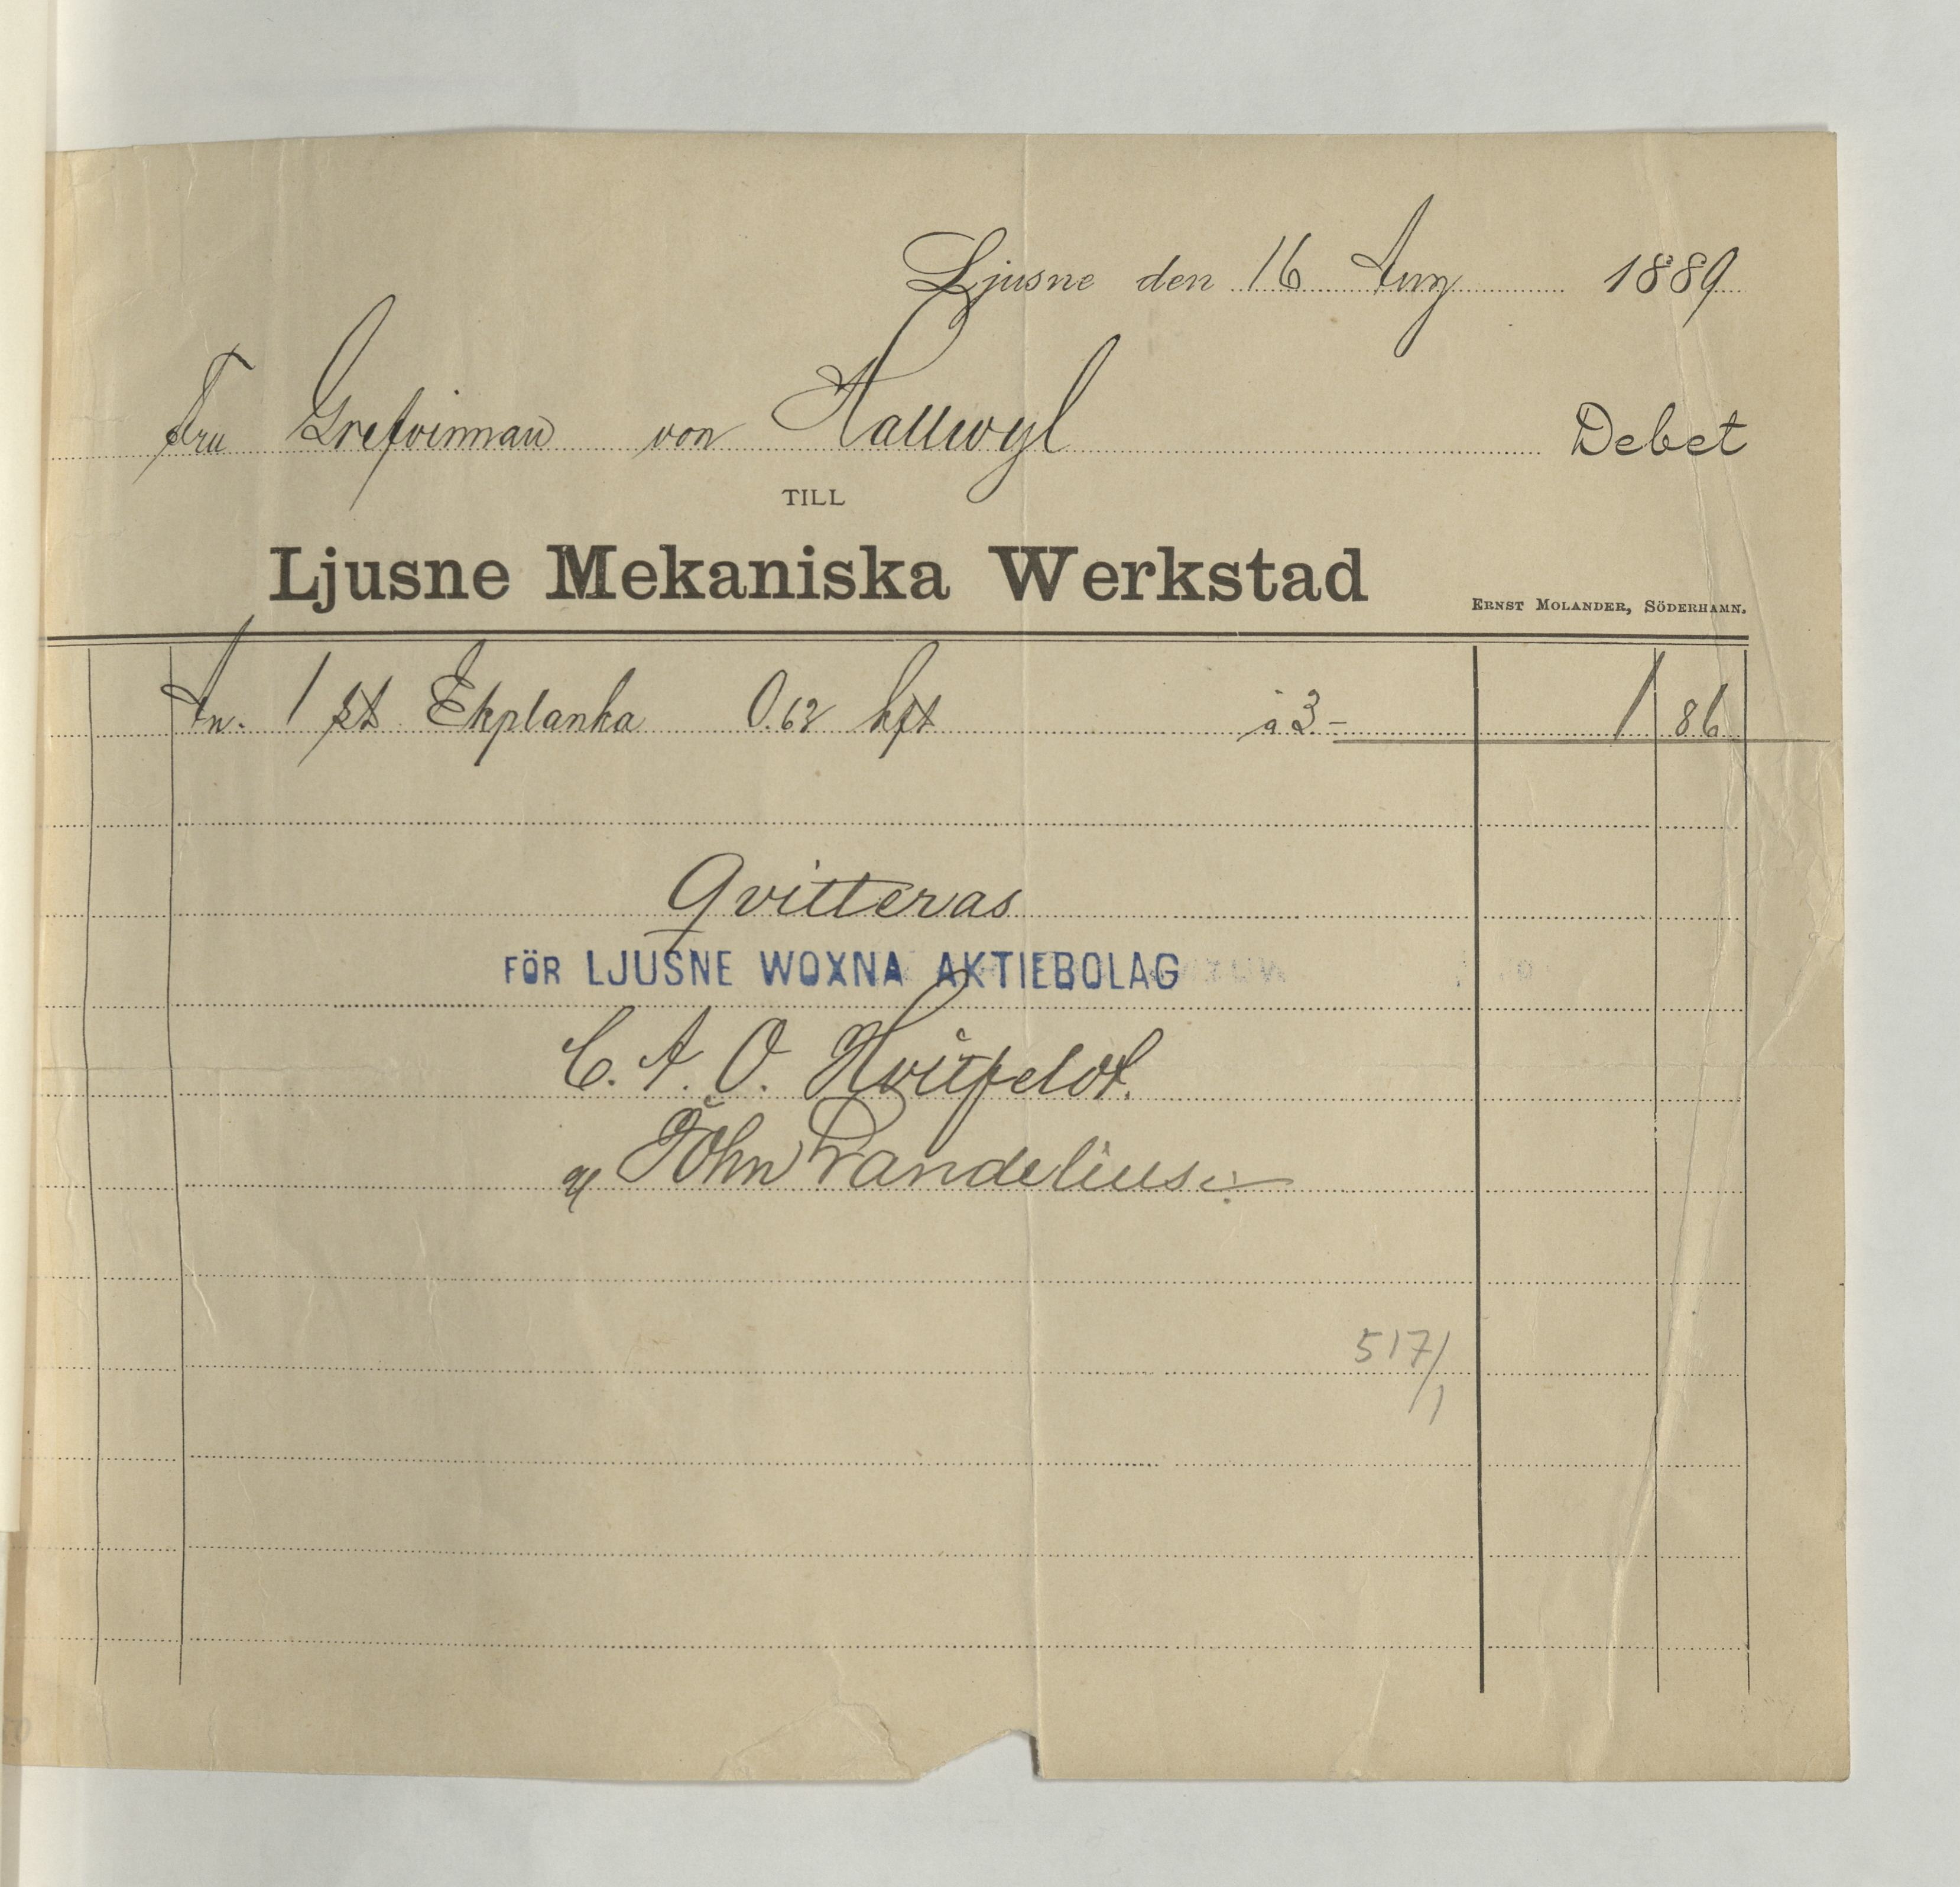 Ljusne den 16 Aug 1889
Fru Grefvinnan von Hallwyl Debet
TILL
Ljusne Mekaniska Werkstad
ERNST MOLANDER, SÖDERHAMN.
An. 1 st Ekplanka 0.62 kft à 3 - 1 86
Qvitteras
FÖR LJUSNE WOXNA AKTIEBOLAG
C. A. O. Hvitfeldt.
John Prandelius
517/1